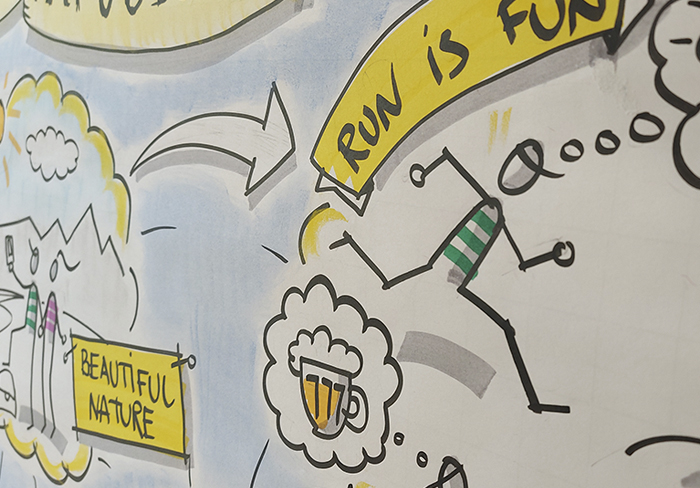 RUN iS FUN
BEAUTiFUL
NATURE